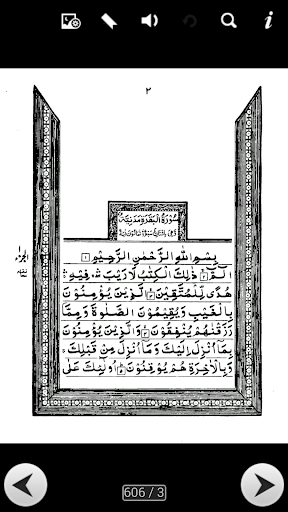 ٢
سُورَةُ الْبَقَرَةِ مَدَنِيَّةٌ
بِسْمِ اللهِ الرَّحْمٰنِ الرَّحِيْمِ
الٓمّٓ ذٰلِكَ الْكِتٰبُ لَا رَيْبَ فِيْهِ
هُدًى لِّلْمُتَّقِيْنَ الَّذِيْنَ يُؤْمِنُوْنَ
بِالْغَيْبِ وَيُقِيْمُوْنَ الصَّلٰوةَ وَمِمَّا
رَزَقْنٰهُمْ يُنْفِقُوْنَ وَالَّذِيْنَ يُؤْمِنُوْنَ
بِمَا اُنْزِلَ اِلَيْكَ وَمَا اُنْزِلَ مِنْ قَبْلِكَ
وَبِالْاٰخِرَةِ هُمْ يُوْقِنُوْنَ اُولٰٓئِكَ عَلٰى
606 / 3